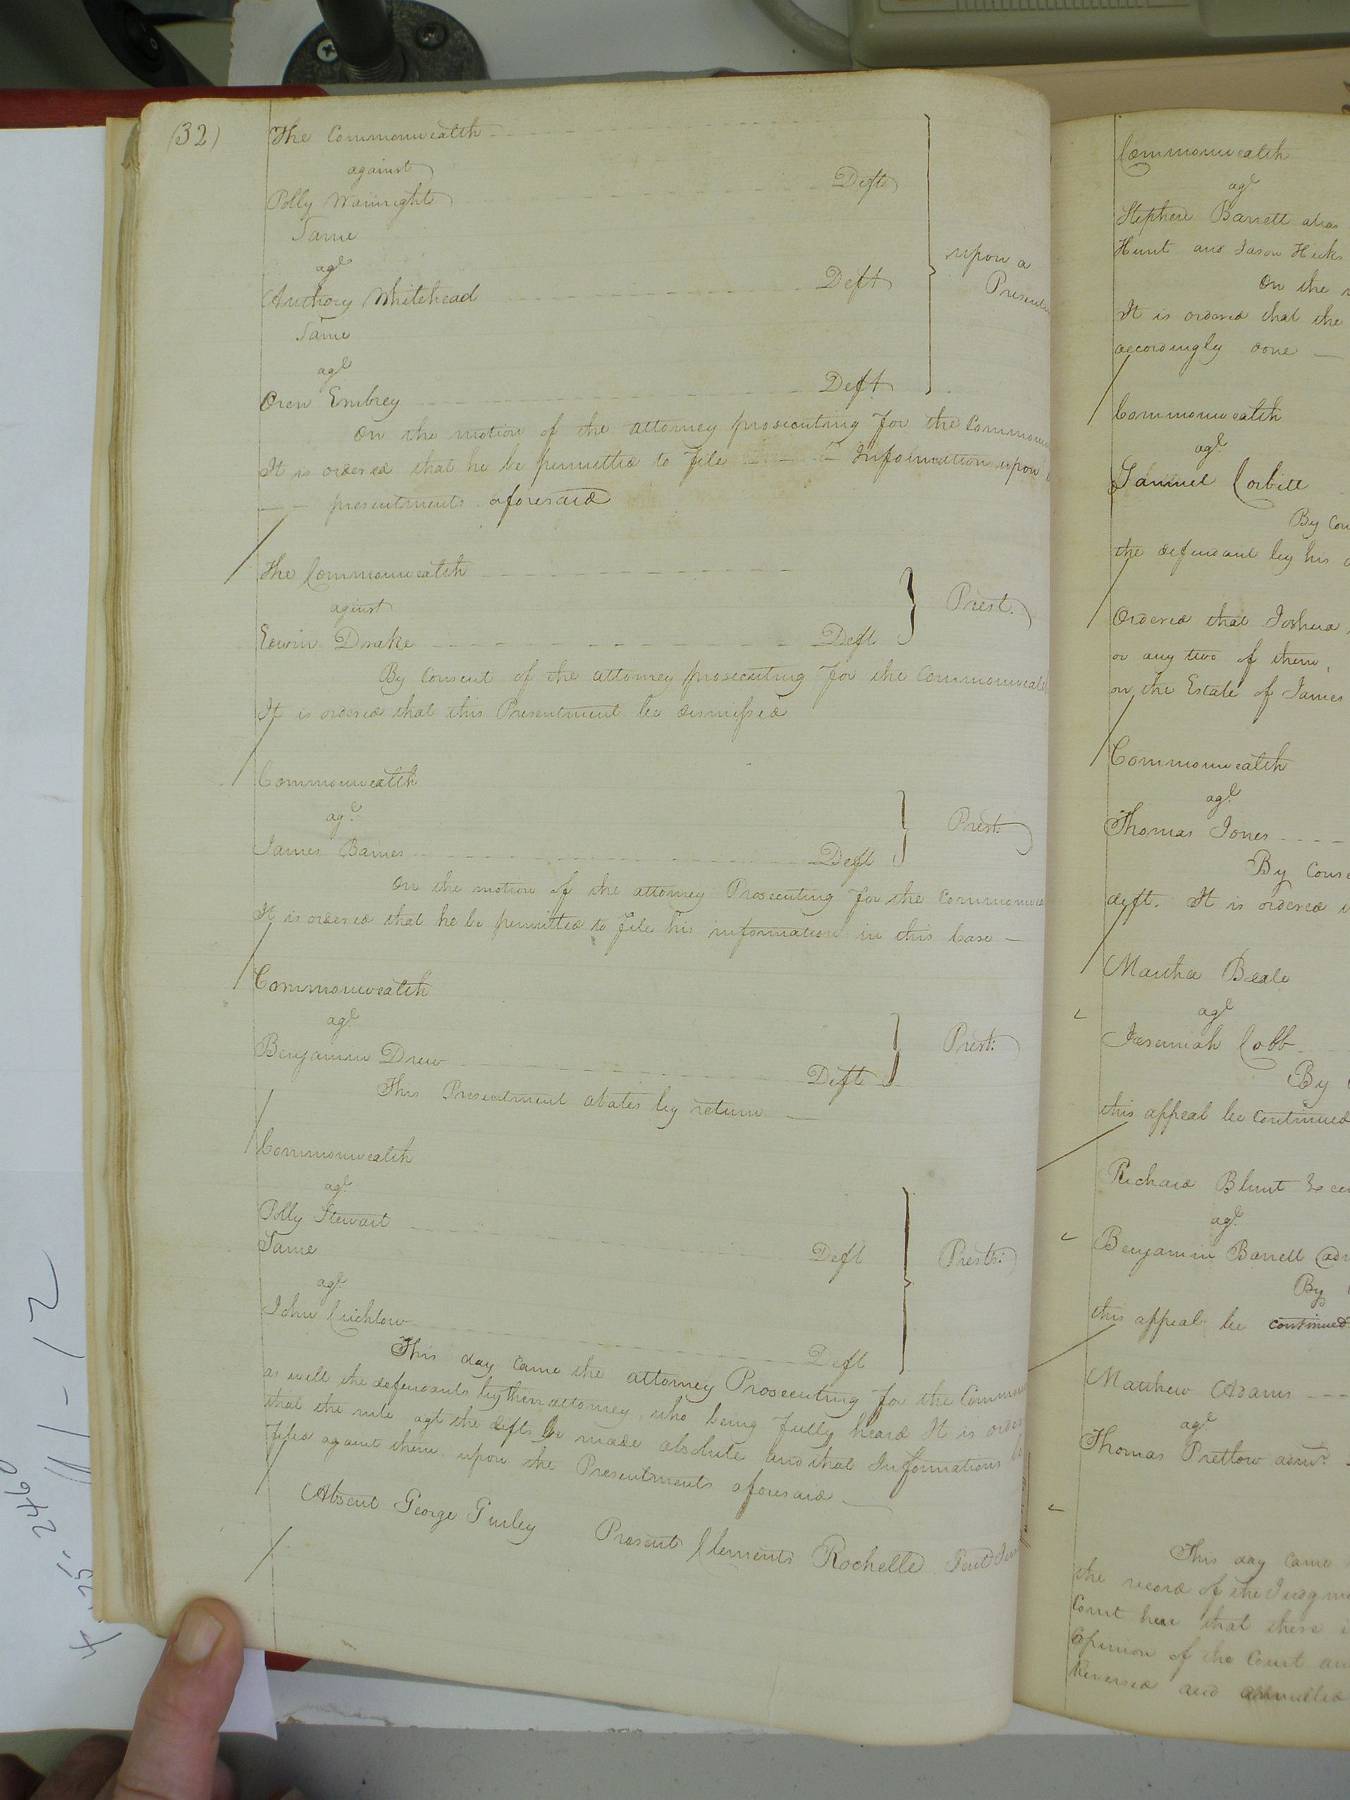 (32)
The Commonwealth
against
Polly Wainright Deft
Same
agt
Anthony Whitehead Deft
upon a
Present
Same
agt
Oren Embrey Deft
On the motion of the attorney prosecuting for the Common
It is ordered that he be permitted to file Information upon
presentments aforesaid
The Commonwealth
against
Edwin Drake Deft
Prest.
By Consent of the attorney prosecuting for the Commonwealth
It is ordered that this Presentment be dismissed
Commonwealth
agt.
James Barnes Deft
Prest.
On the motion of the attorney Prosecuting for the Commonwea
It is ordered that he be permitted to file his information in this Case
Commonwealth
agt
Benjamin Drew Deft
Prest:
This Presentment abates by return
Commonwealth
agt
Polly Stewart Deft
Same
Prests:
agt
John Crichlow Deft
This day came the attorney Prosecuting for the Common
as well the defendants by their attorney, who being fully heard It is order
that the rule agt the defts be made absolute and that Informations be
filed against them upon the Presentments aforesaid
Absent George Gurley Present Clements Rochelle Gent
Commonwealth
agt
Stephen Barrett alias
Hunt and Jason Hicks
On the
It is ordered that the
accordingly done
Commonwealth
agt.
Samuel Corbitt
By Con
the defendant by his
Ordered that Joshua
or any two of them,
on the Estate of James
Commonwealth
agt
Thomas Jones
By Cons
deft. It is ordered
Martha Beale
agt
Jeremiah Cobb
By
this appeal be continued
Richard Blunt
agt.
Benjamin Barrett adm
By
this appeal be continued
Matthew Adams
agt
Thomas Pretlow admr.
This day came
the record of the Judgme
Court here that there i
opinion of the Court an
Reversed and annulled
4.25.2460
11-12